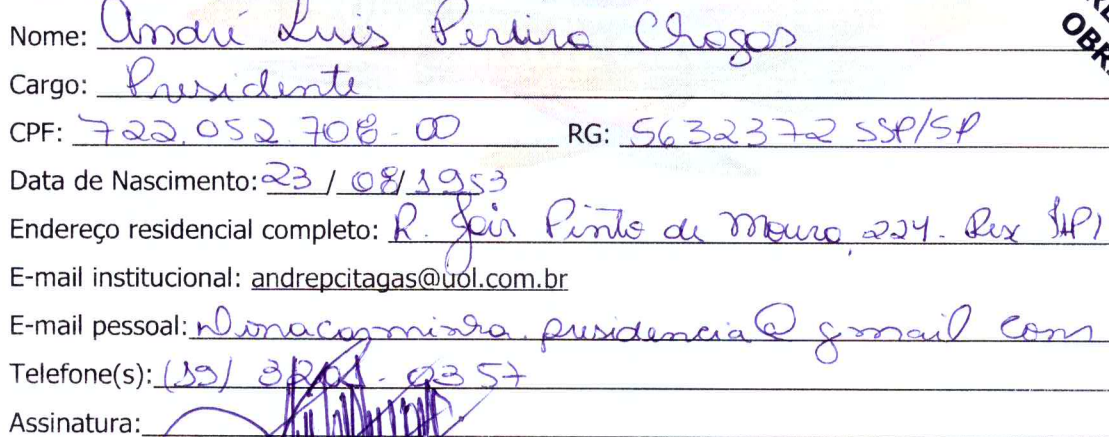 Nome: André Luis Pereira Chagas
Cargo: Presidente
CPF: 722.052.708-00 RG: 5632372 SSP/SP
Data de Nascimento: 23 / 08/1953
Endereço residencial completo: R. Jair Pinto de Moura, 224. Rex
E-mail institucional: andrepcitagas@uol.com.br
E-mail pessoal: presidencia@gmail com
Telefone(s): (19) 3201-0357
Assinatura: